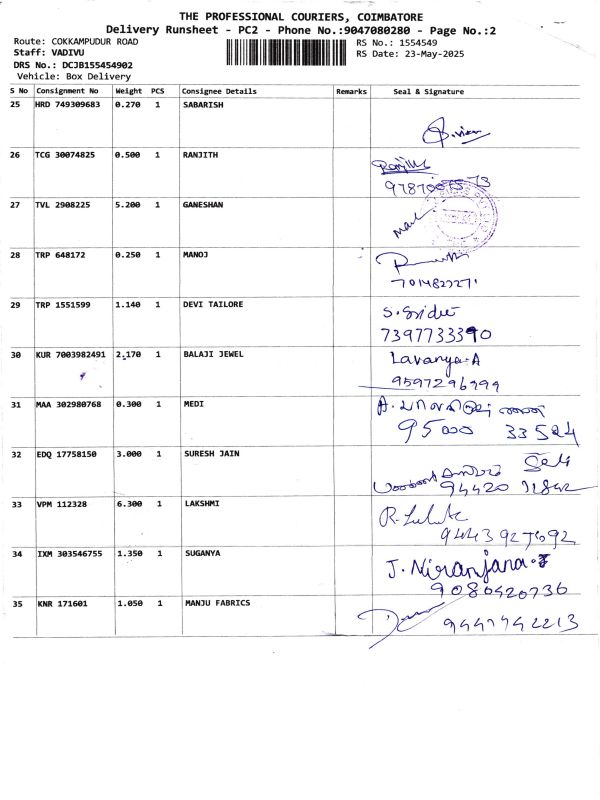 THE PROFESSIONAL COURIERS, COIMBATORE
Delivery Runsheet - PC2 - Phone No.:9047080280 - Page No.:2
Route: COKKAMPUDUR ROAD
RS No.: 1554549
Staff: VADIVU
RS Date: 23-May-2025
DRS No.: DCJB155454902
Vehicle: Box Delivery
S No Consignment No Weight PCS Consignee Details Remarks Seal & Signature
25 HRD 749309683 0.270 1 SABARISH
26 TCG 30074825 0.500 1 RANJITH
27 TVL 2908225 5.200 1 GANESHAN
28 TRP 648172 0.250 1 MANOJ
29 TRP 1551599 1.140 1 DEVI TAILORE
S. Sridei
7397733390
30 KUR 7003982491 2.170 1 BALAJI JEWEL
Lavanya.A
9597296999
31 MAA 302980768 0.300 1 MEDI
95000 33524
32 EDQ 17758150 3.000 1 SURESH JAIN
94420 11842
33 VPM 112328 6.300 1 LAKSHMI
9443927692
34 IXM 303546755 1.350 1 SUGANYA
J. Niranjana.J
9080420736
35 KNR 171601 1.050 1 MANJU FABRICS